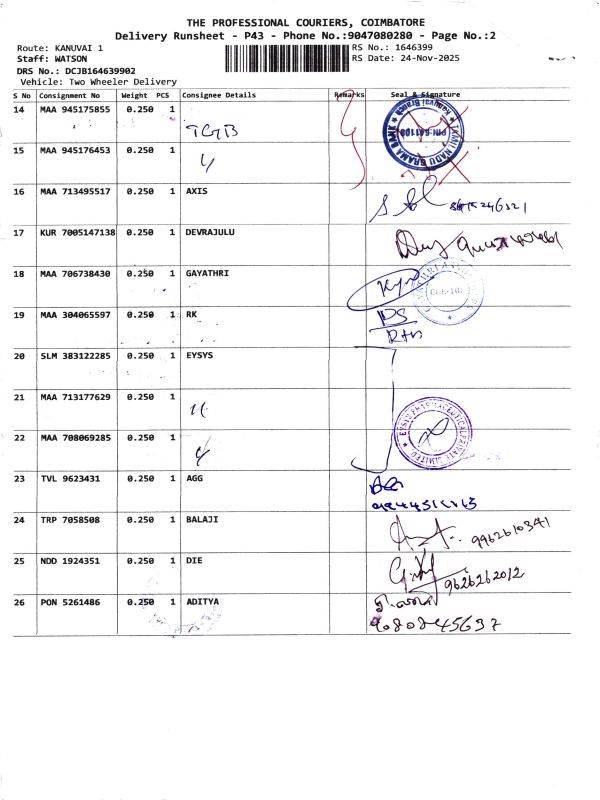 THE PROFESSIONAL COURIERS, COIMBATORE
Delivery Runsheet - P43 - Phone No.:9047080280 - Page No.:2
Route: KANUVAI 1
RS No.: 1646399
Staff: WATSON
RS Date: 24-Nov-2025
DRS No.: DCJB164639902
Vehicle: Two Wheeler Delivery
S No Consignment No Weight PCS Consignee Details Remarks Seal & Signature
14 MAA 945175855 0.250 1 TGB
TAMIL NADU GRAMA BANK
Kanuvai Branch
15 MAA 945176453 0.250 1
16 MAA 713495517 0.250 1 AXIS
17 KUR 7005147138 0.250 1 DEVRAJULU
18 MAA 706738430 0.250 1 GAYATHRI
19 MAA 304065597 0.250 1 RK
20 SLM 383122285 0.250 1 EYSYS
21 MAA 713177629 0.250 1
22 MAA 708069285 0.250 1
EYSYS PHARMACEUTICAL PRIVATE LIMITED
23 TVL 9623431 0.250 1 AGG
24 TRP 7058508 0.250 1 BALAJI
9962610341
25 NDD 1924351 0.250 1 DIE
9626262012
26 PON 5261486 0.250 1 ADITYA
9080845637